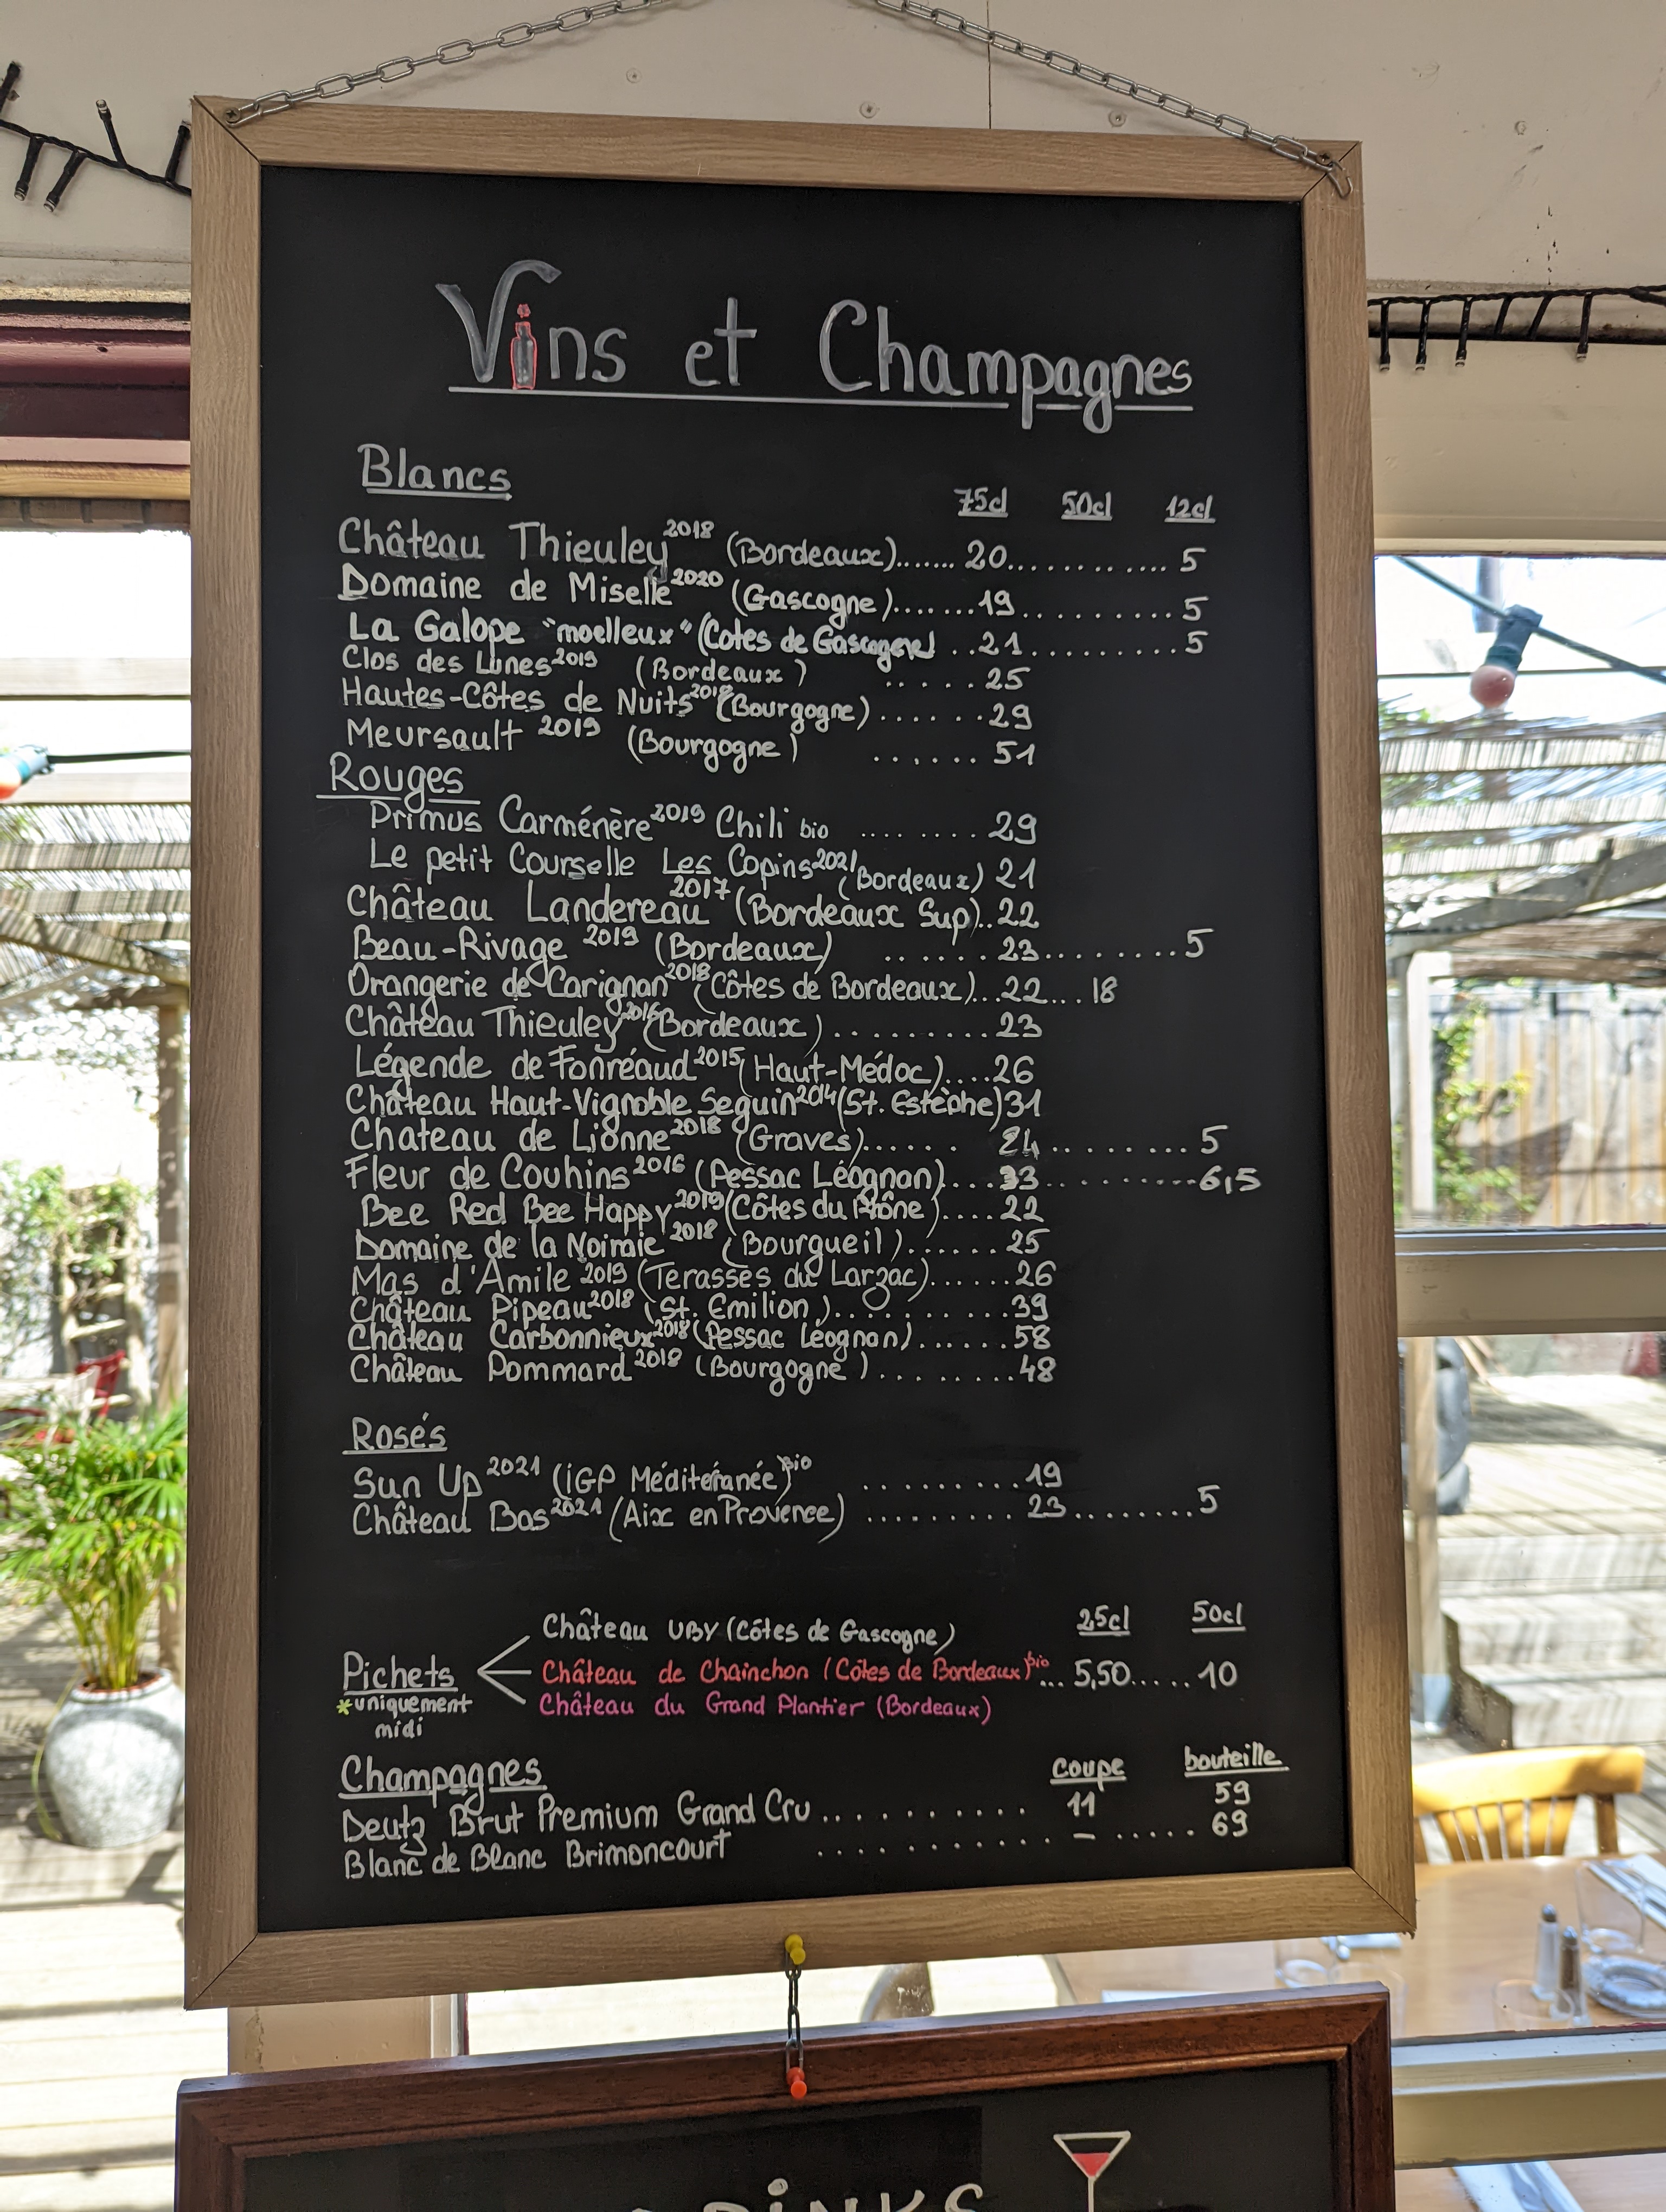 Vins et Champagnes
Blancs
75cl 50cl 12cl
Château Thieuley 2018 (Bordeaux)....... 20............ 5
Domaine de Miselle 2020 (Gascogne).......19.......... 5
La Galope "moelleux" (Cotes de Gascogne) ..21..........5
Clos des Lunes 2019 (Bordeaux) ..... 25
Hautes-Côtes de Nuits 2018 (Bourgogne)......29
Meursault 2019 (Bourgogne) ...... 51
Rouges
Primus Carménère 2019 Chili bio ........ 29
Le petit Courselle Les Copins 2021 (Bordeaux) 21
Château Landereau 2017 (Bordeaux Sup)..22
Beau-Rivage 2019 (Bordeaux) ......23........5
Orangerie de Carignan 2018 (Côtes de Bordeaux)...22....18
Château Thieuley 2016 (Bordeaux).........23
Légende de Fonréaud 2015 (Haut-Médoc)....26
Château Haut-Vignoble Seguin 2014 (St. Estèphe) 31
Chateau de Lionne 2018 (Graves)...... 24........5
Fleur de Couhins 2016 (Pessac Léognan)....33..........6,5
Bee Red Bee Happy 2019 (Côtes du Rhône)....22
Domaine de la Noiraie 2018 (Bourgueil)......25
Mas d'Amile 2019 (Terasses du Larzac).......26
Château Pipeau 2018 (St. Emilion)..........39
Château Carbonnieux 2018 (Pessac Léognan)......58
Château Pommard 2018 (Bourgogne)........48
Rosés
Sun Up 2021 (iGP Méditéranée) bio .........19
Château Bas 2021 (Aix en Provence) .........23........5
25cl 50cl
Château UBY (Côtes de Gascogne)
Pichets Château de Chainchon (Côtes de Bordeaux) bio...5,50.....10
*uniquement midi
Château du Grand Plantier (Bordeaux)
Champagnes coupe bouteille
Deutz Brut Premium Grand Cru........... 11 59
Blanc de Blanc Brimoncourt .......... - ..... 69
DRiNKS